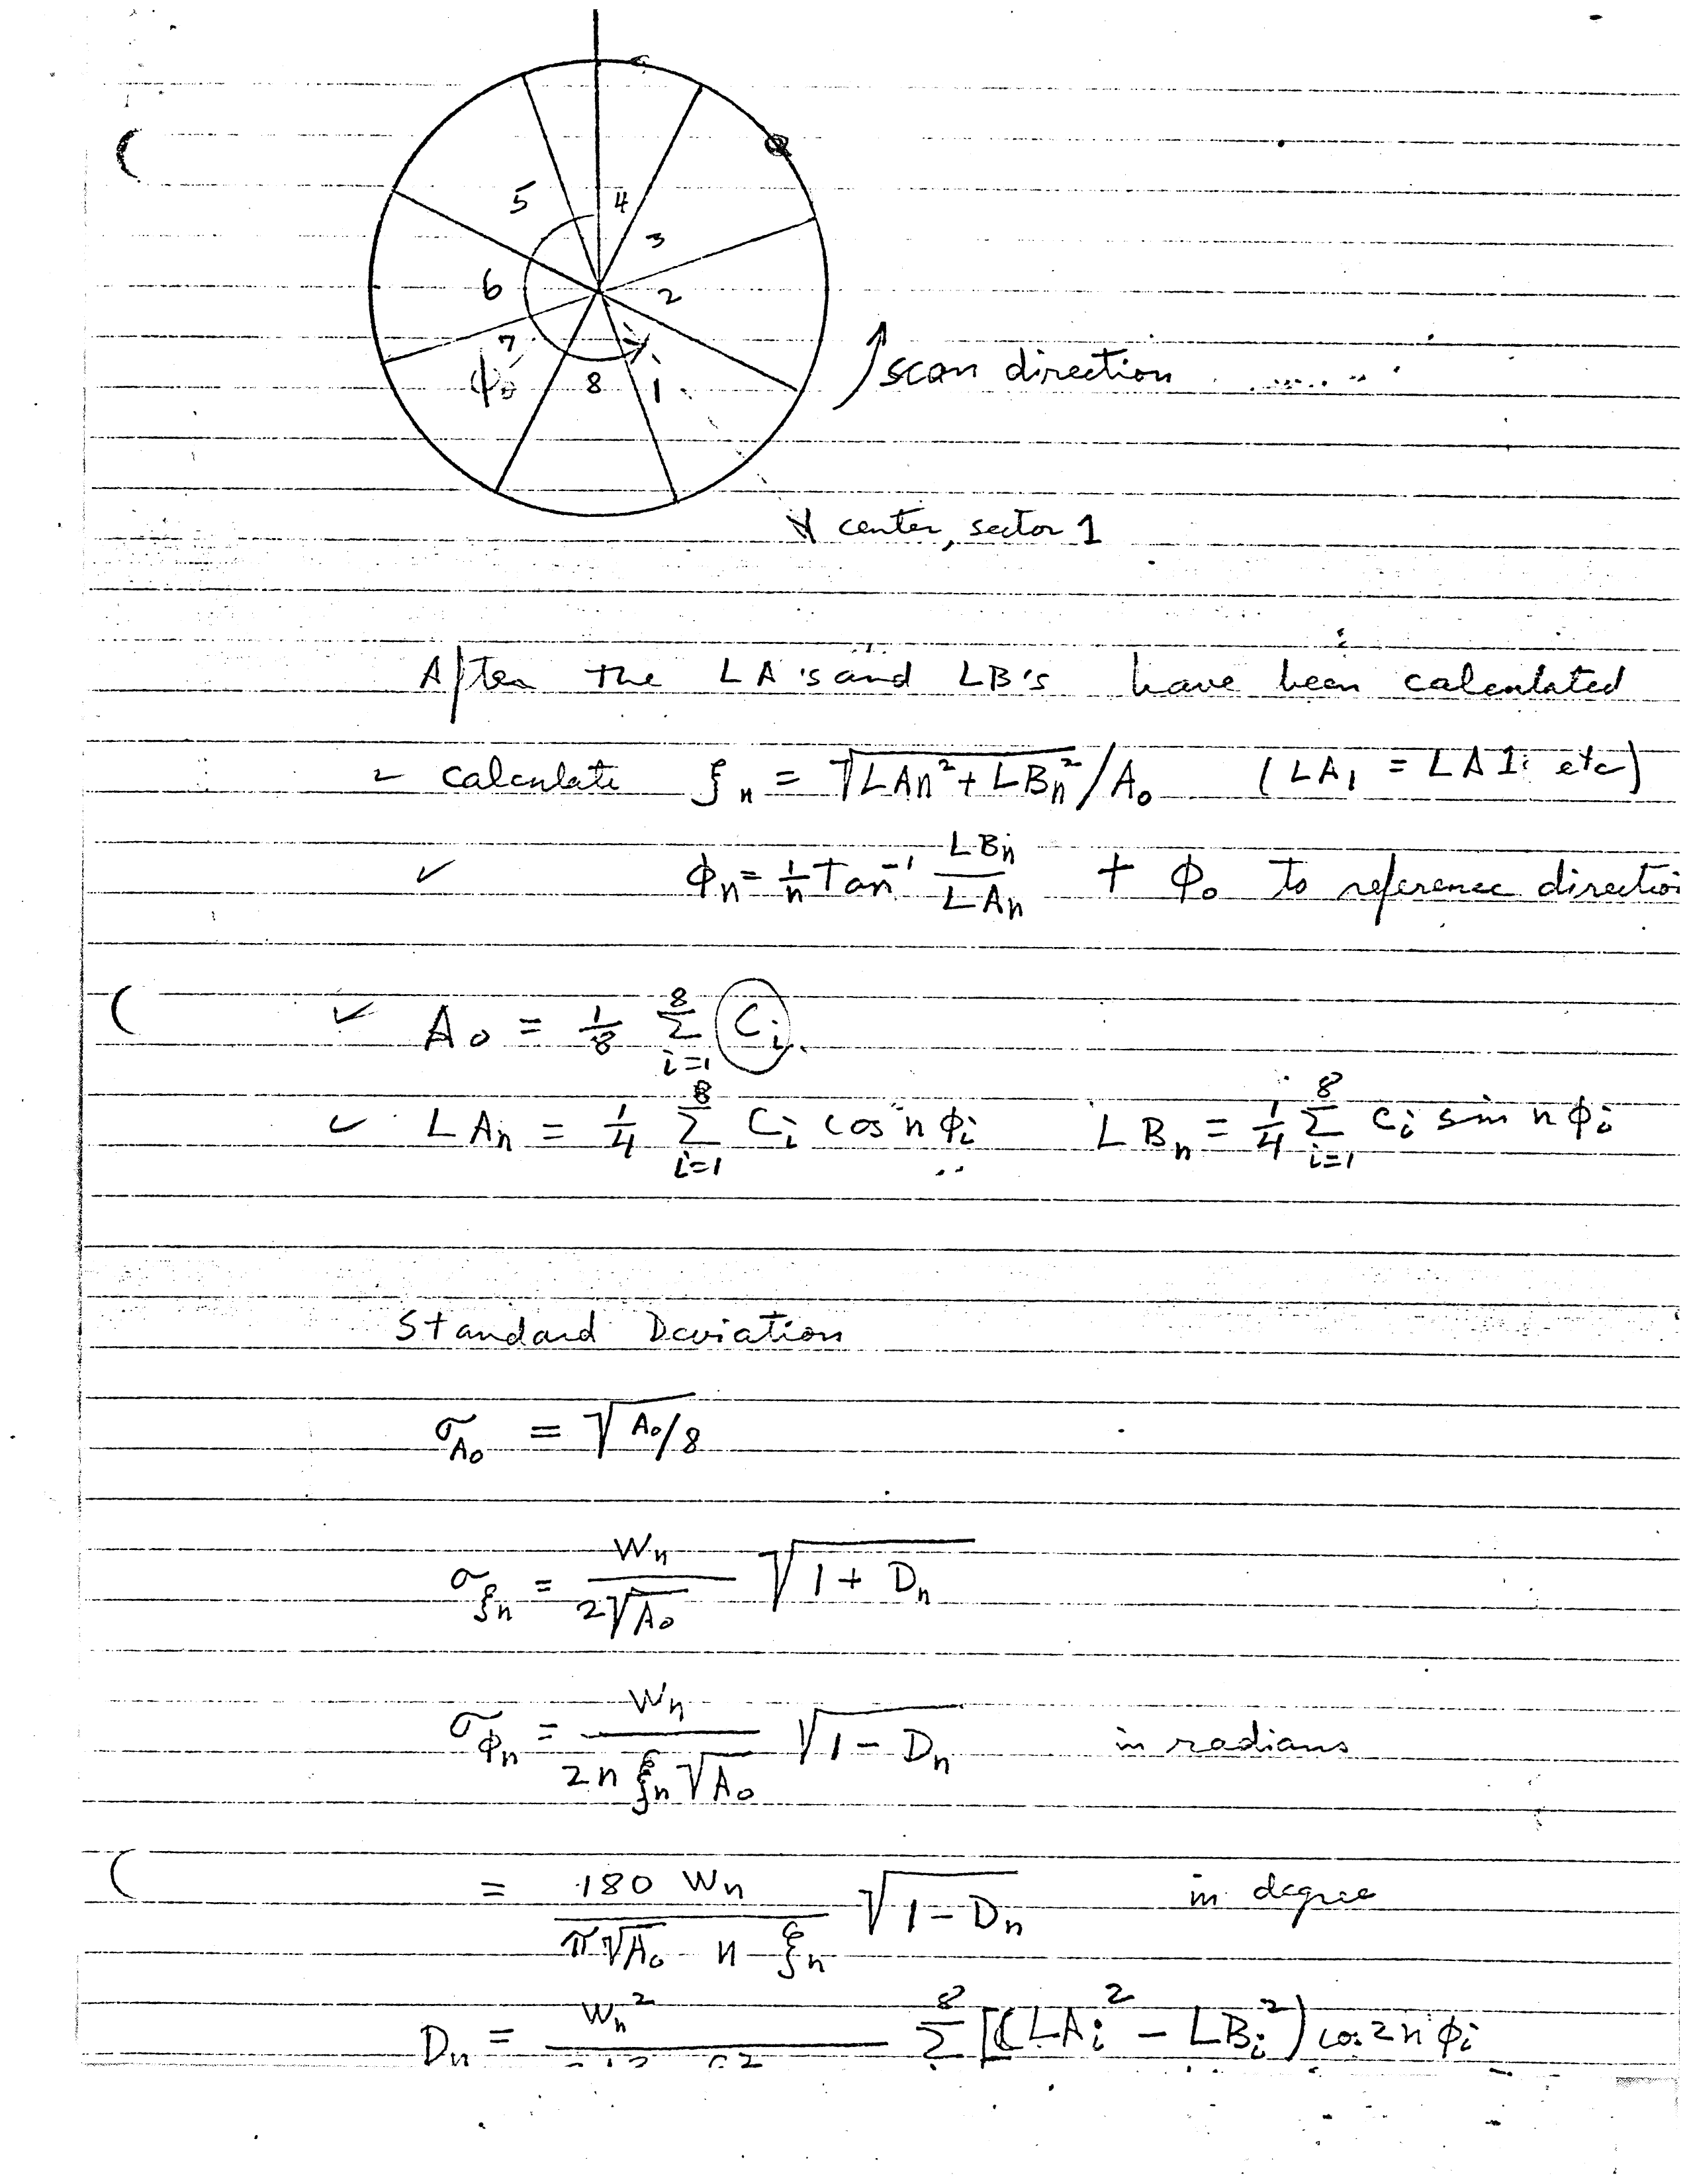 5 4
3
6
2
7
φ₀ 8 1
scan direction
center, sector 1
After the LA's and LB's have been calculated
calculate ξn = √(LAn² + LBn²) / A₀ (LA₁ = LA1 etc)
✓ φn = 1/n Tan⁻¹ LBn/LAn + φ₀ to reference direction
✓ A₀ = 1/8 Σ_{i=1}^{8} Ci
✓ LAn = 1/4 Σ_{i=1}^{8} Ci cos n φi LBn = 1/4 Σ_{i=1}^{8} Ci sin n φi
Standard Deviation
σ_{A₀} = √(A₀/8)
σ_{ξn} = Wn / (2√A₀) √(1 + Dn)
σ_{φn} = Wn / (2n ξn √A₀) √(1 - Dn) in radians
= 180 Wn / (π√A₀ n ξn) √(1 - Dn) in degree
Dn = Wn² Σ^{8} [(LAi² - LBi²) cos 2n φi